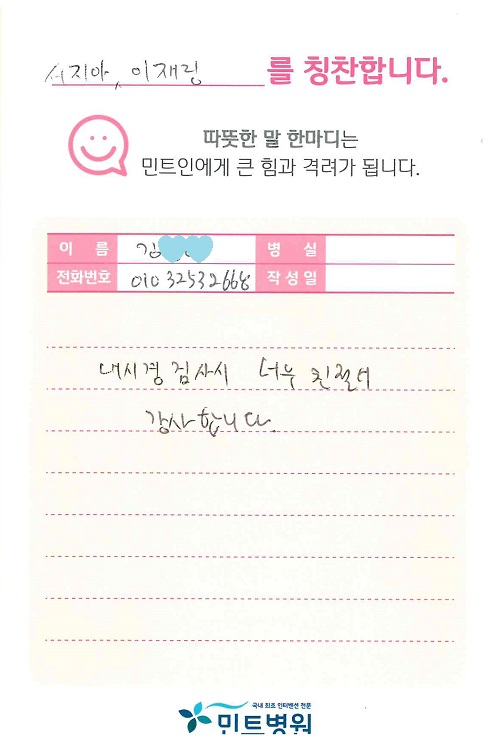 서지아, 이재링 를 칭찬합니다.
따뜻한 말 한마디는
민트인에게 큰 힘과 격려가 됩니다.
이 름 김 병 실
전화번호 010 32532668 작성일
내시경 검사시 너무 친절히
감사합니다.
국내 최초 인터벤션 전문
민트병원